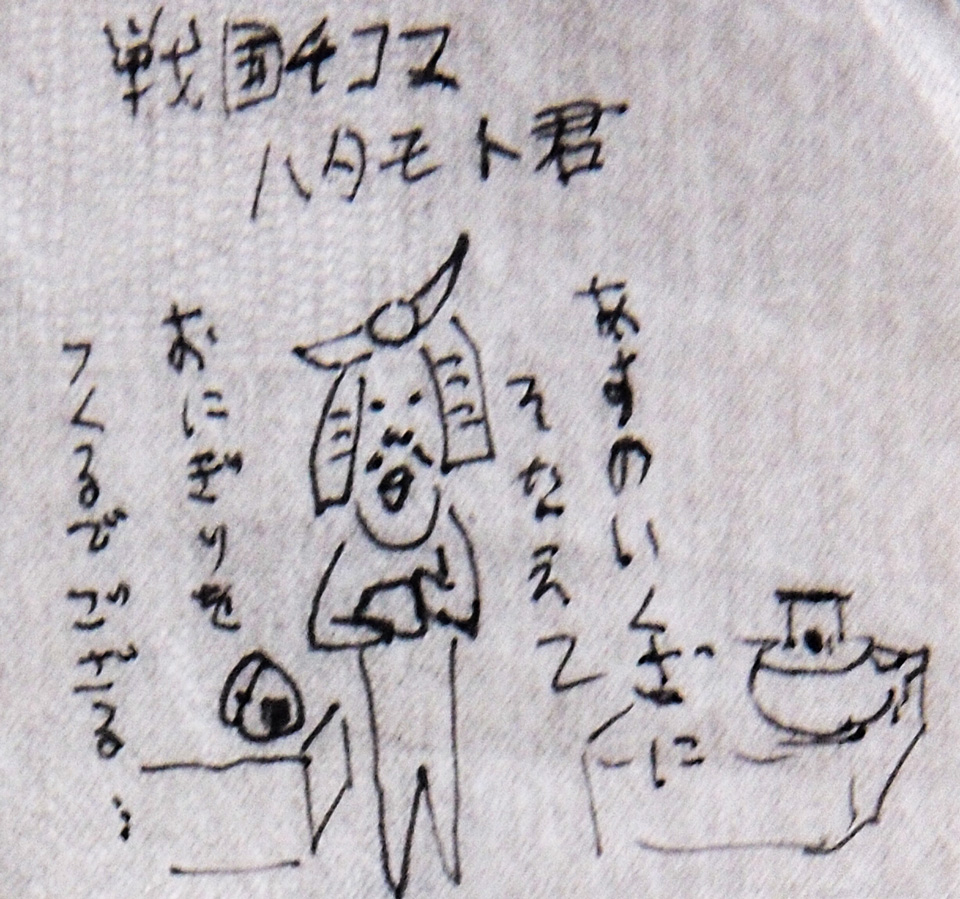 戦国チコス
ハタモト君
あすのいくさに
そなえて
おにぎりを
つくるでござる…